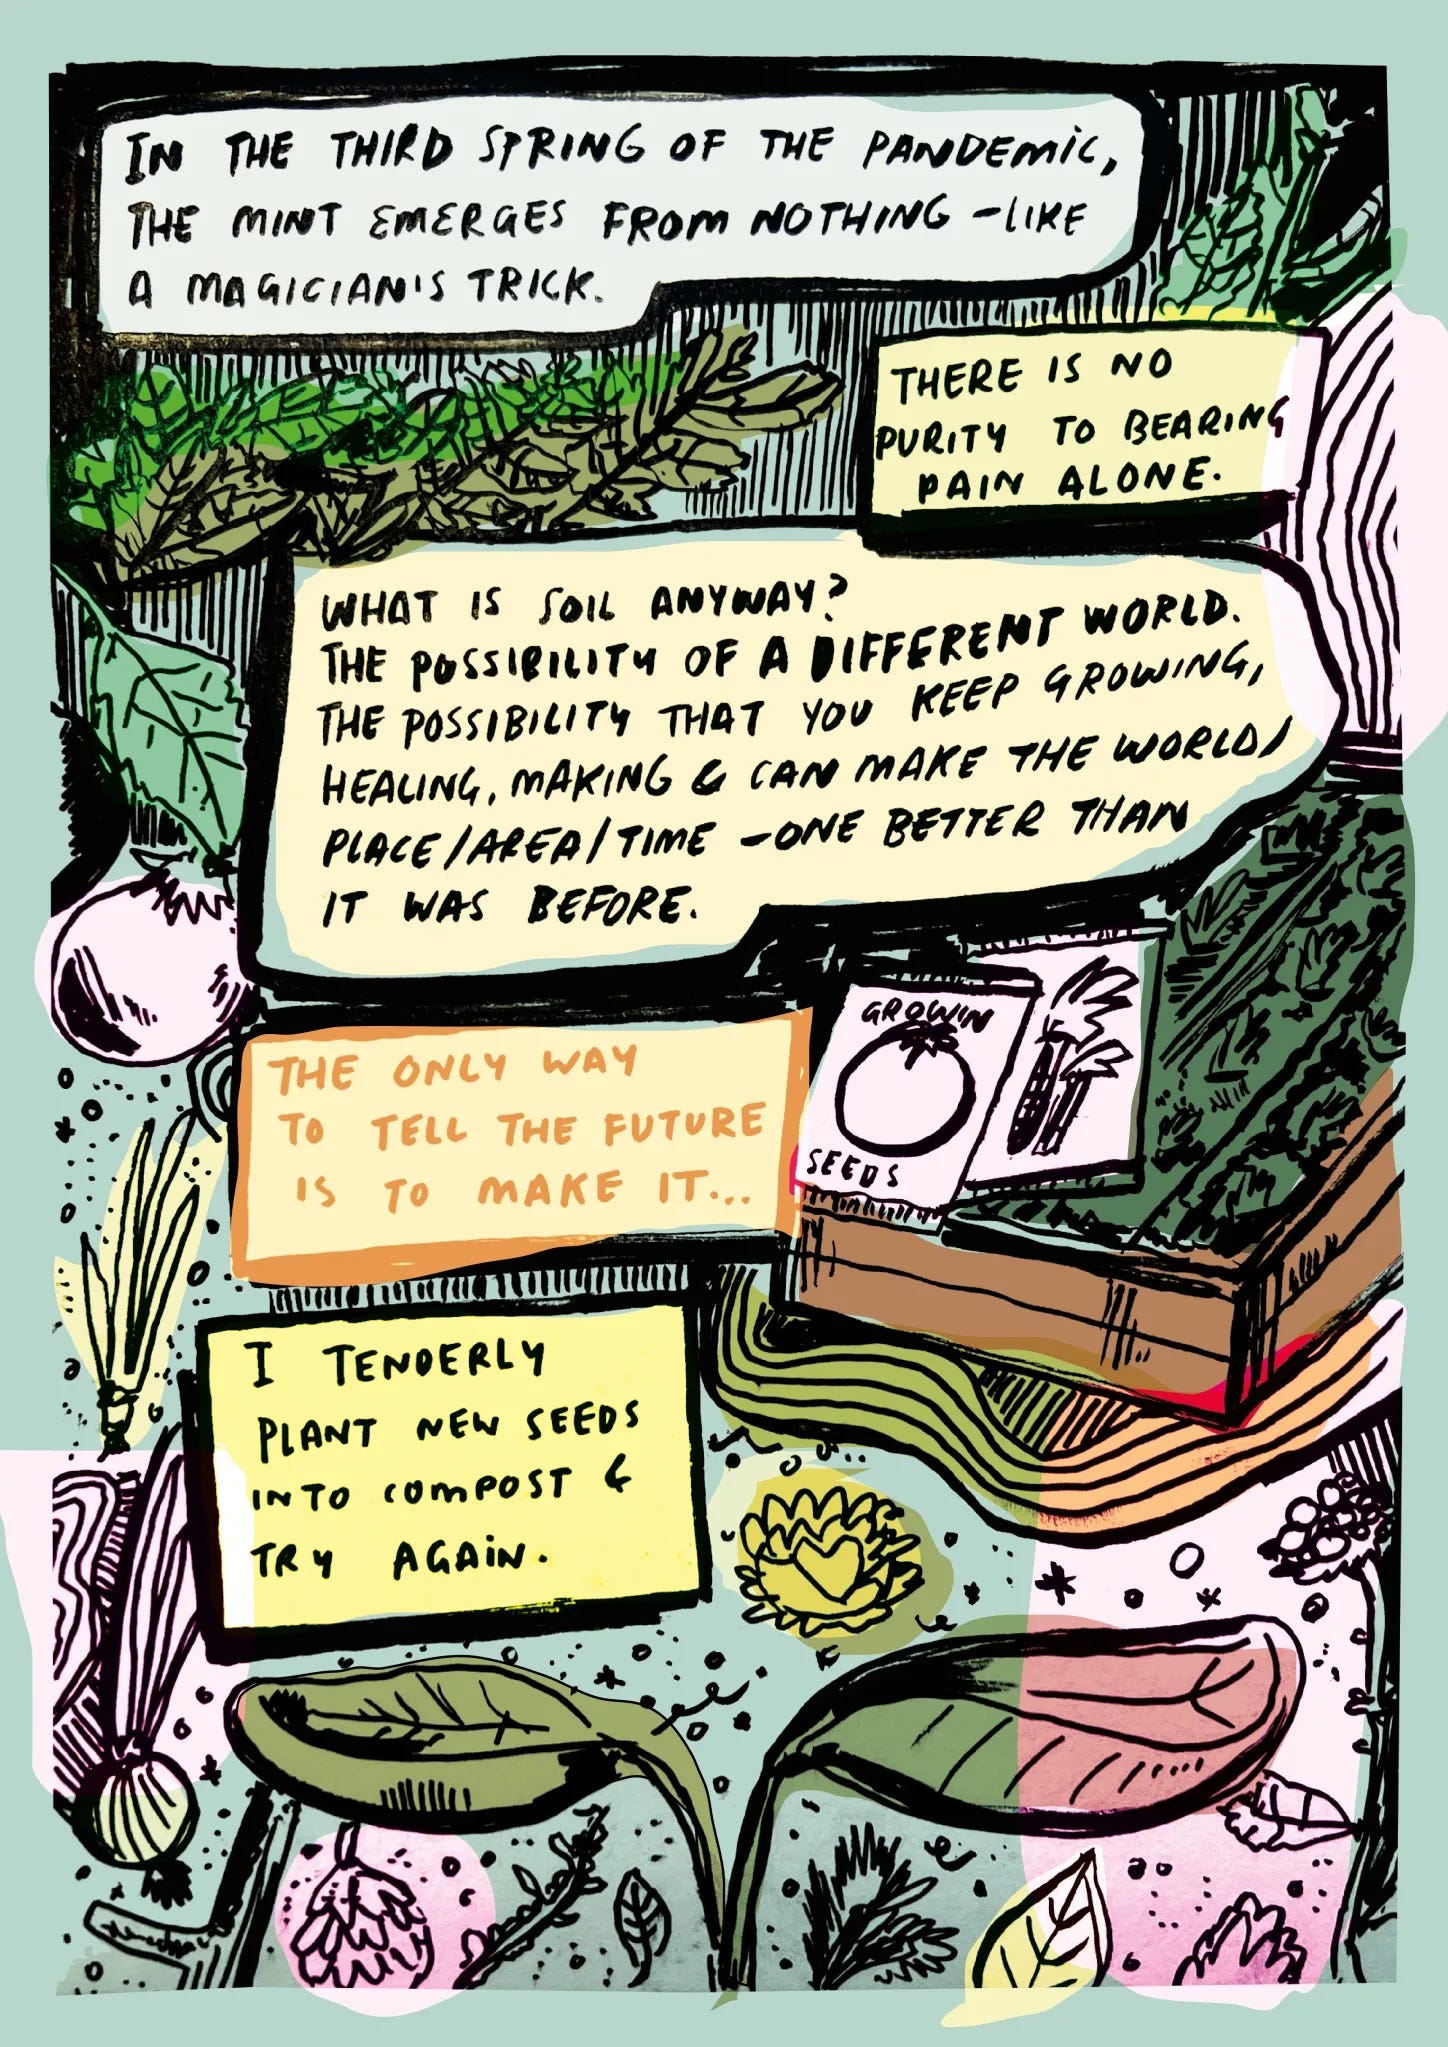 IN THE THIRD SPRING OF THE PANDEMIC,
THE MINT EMERGES FROM NOTHING -LIKE
A MAGICIAN'S TRICK.
THERE IS NO
PURITY TO BEARING
PAIN ALONE.
WHAT IS SOIL ANYWAY?
THE POSSIBILITY OF A DIFFERENT WORLD.
THE POSSIBILITY THAT YOU KEEP GROWING,
HEALING, MAKING & CAN MAKE THE WORLD/
PLACE/AREA/TIME -ONE BETTER THAN
IT WAS BEFORE.
GROWIN
SEEDS
THE ONLY WAY
TO TELL THE FUTURE
IS TO MAKE IT...
I TENDERLY
PLANT NEW SEEDS
INTO COMPOST &
TRY AGAIN.